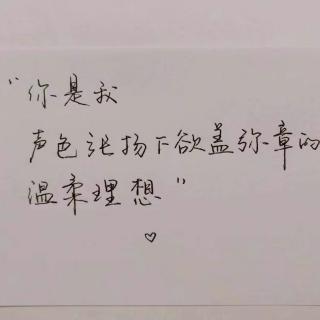 “你是我
声色张扬下欲盖弥章的
温柔理想”
♡